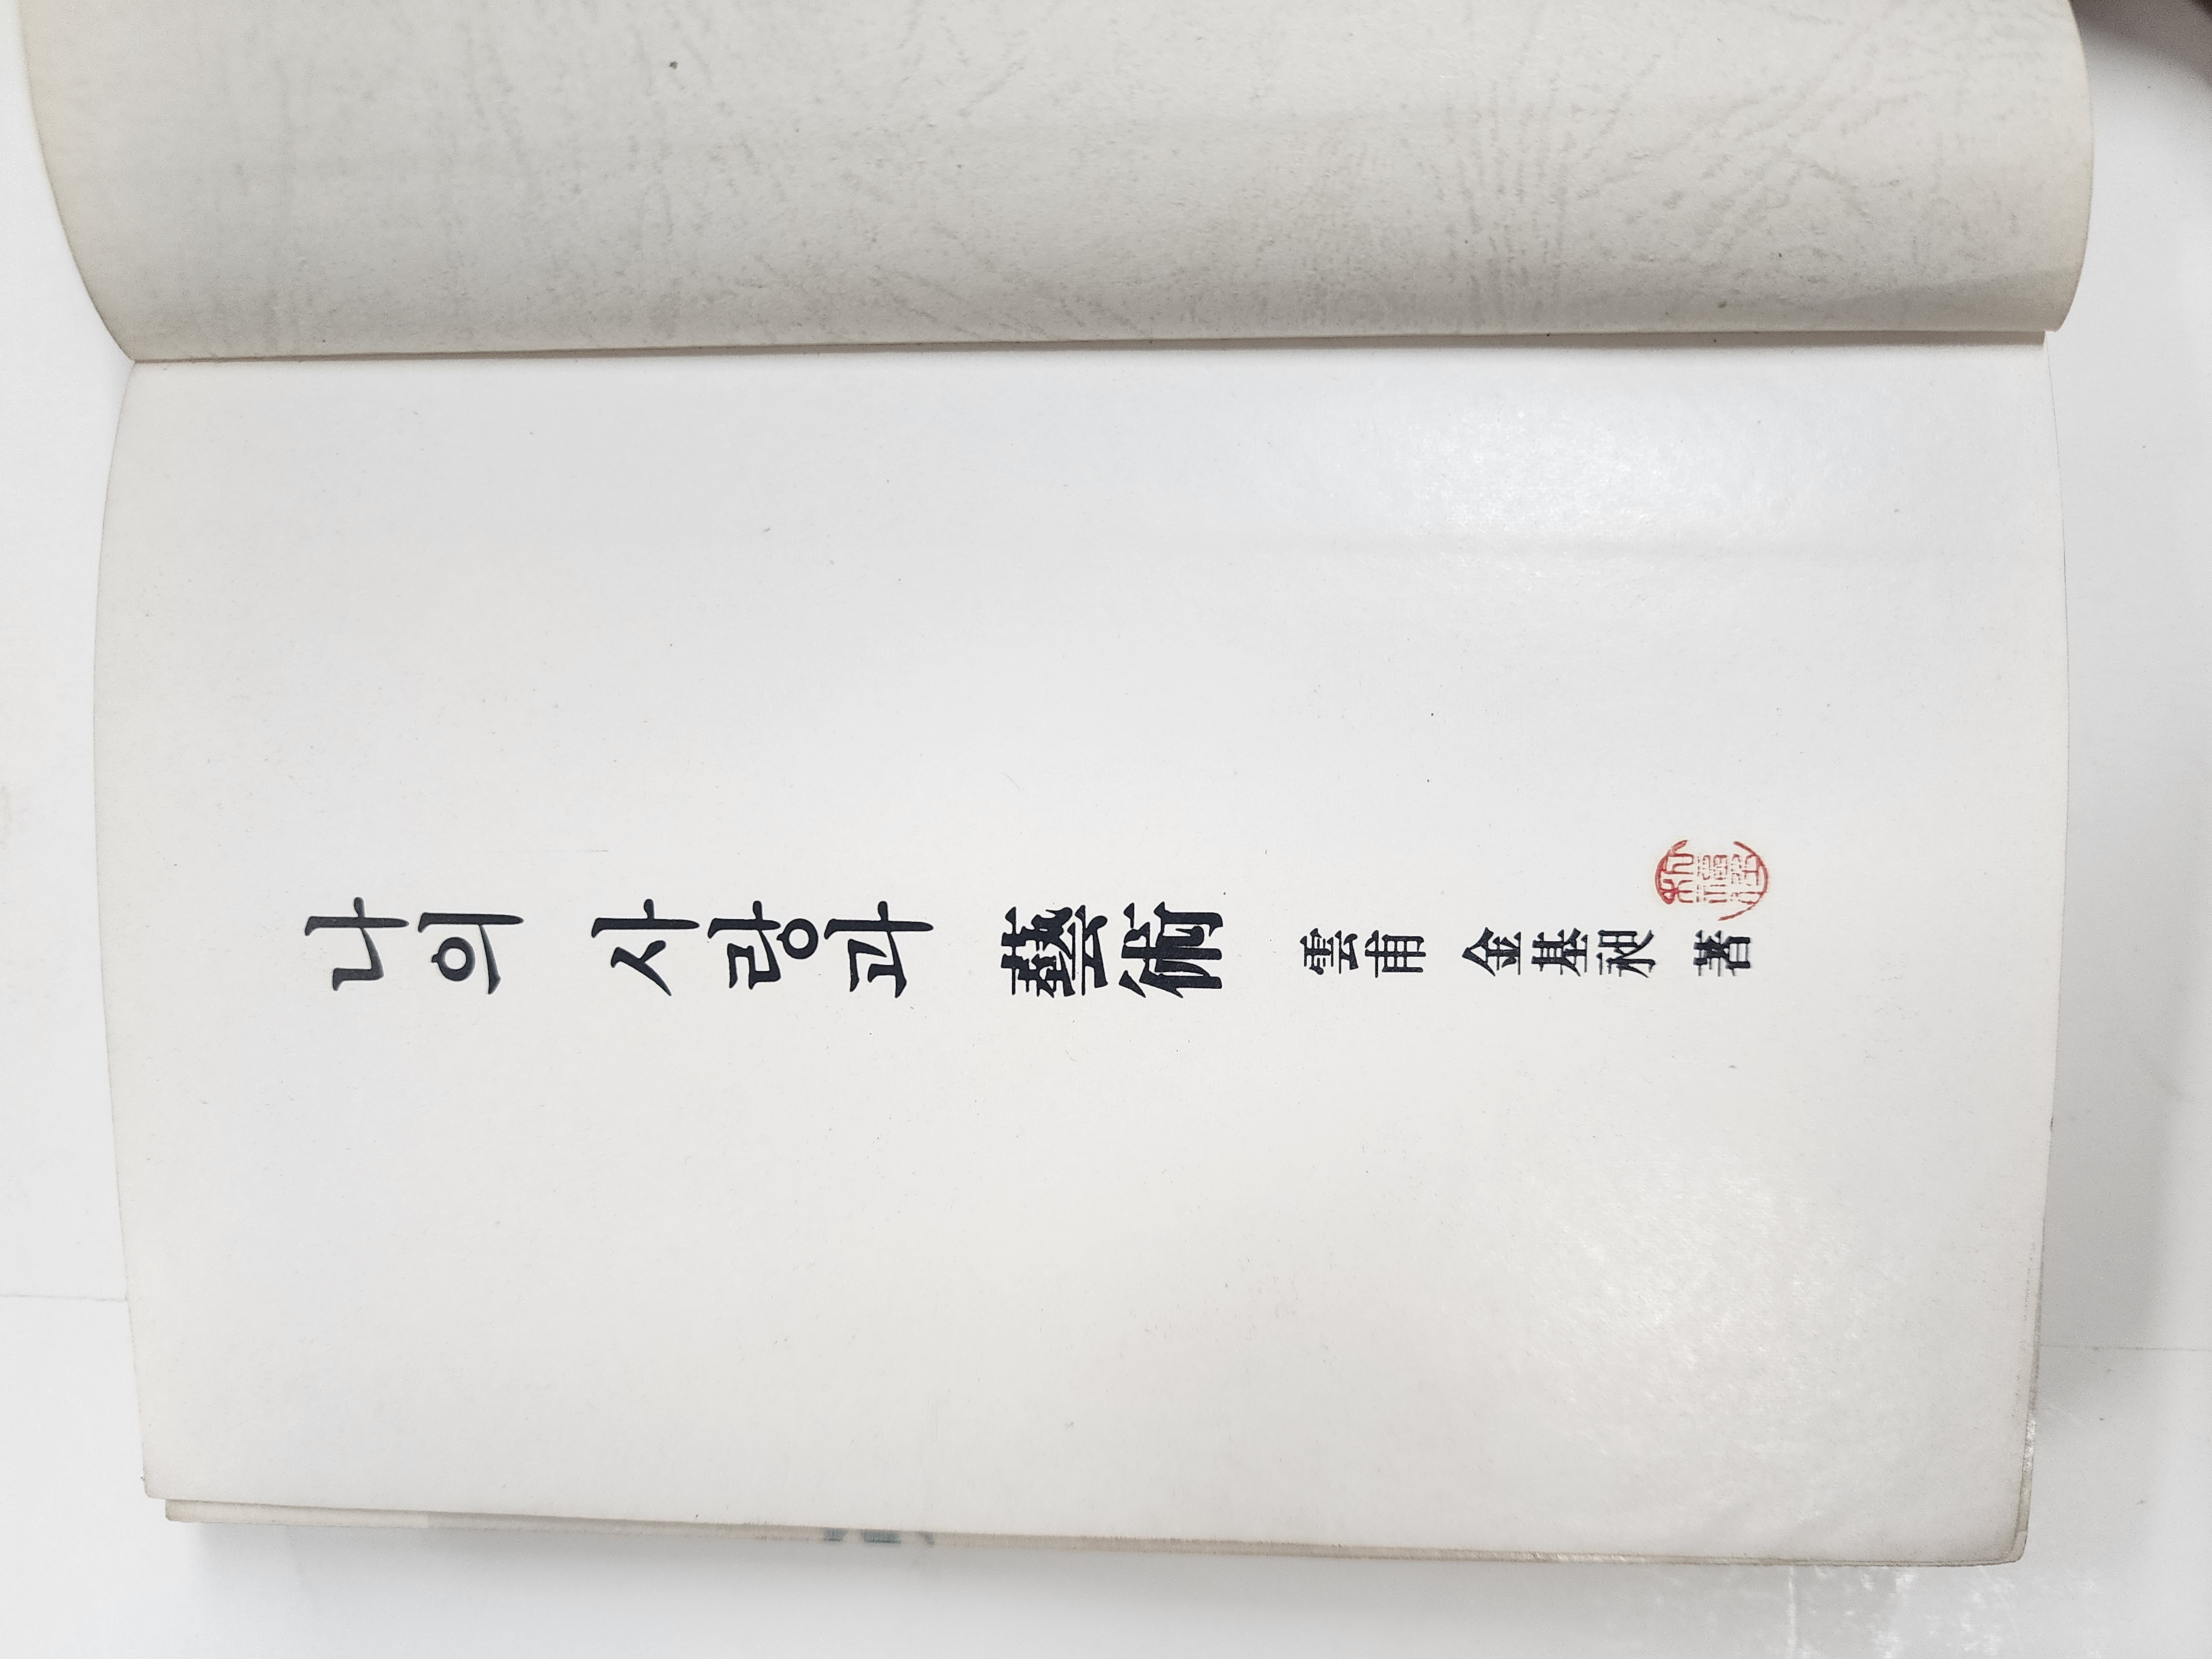 나의 사랑과 藝術 雲甫 金基昶 著